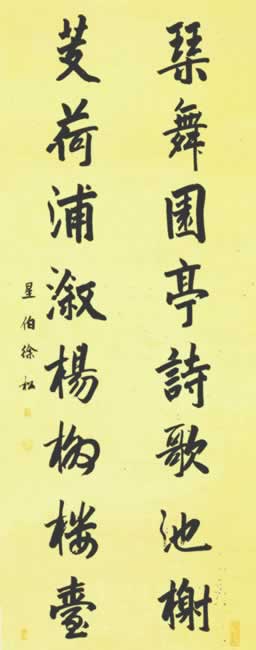 琹舞園亭詩歌池榭
芰荷浦溆楊柳楼臺
星伯徐松